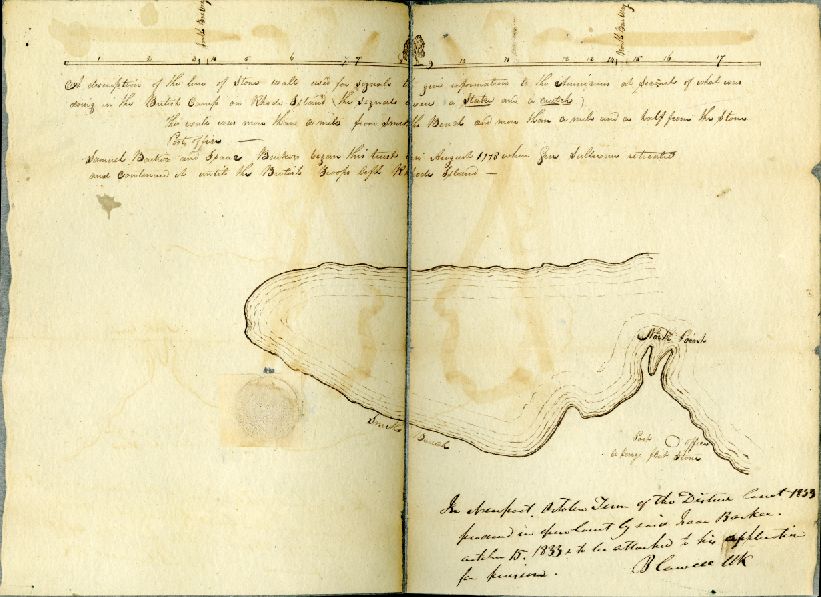 South Barway
South Barway
1 2 3 4 5 6 7 9 10 11 12 13 14 15 16 17
A description of the line of Stone walls used for signals to give information to the Americans at Seconet of what was
doing in the British Camp on Rhode Island (the signals were a Stake and a crotch)
The walls was more than a mile from Smiths Beach and more than a mile and a half from the Stone
Post office —
Samuel Barker and Isaac Barker began this in August 1778 when Gen Sullivan retreated
and continued it until the British Troops left Rhode Island —
Rock Point
Smiths Beach
Post office
a large flat Stone
In Newport, October Term of the District Court 1833
produced in open Court by said Isaac Barker.
october 15. 1833 & to be attached to his application
for pension. B Cowell Clk